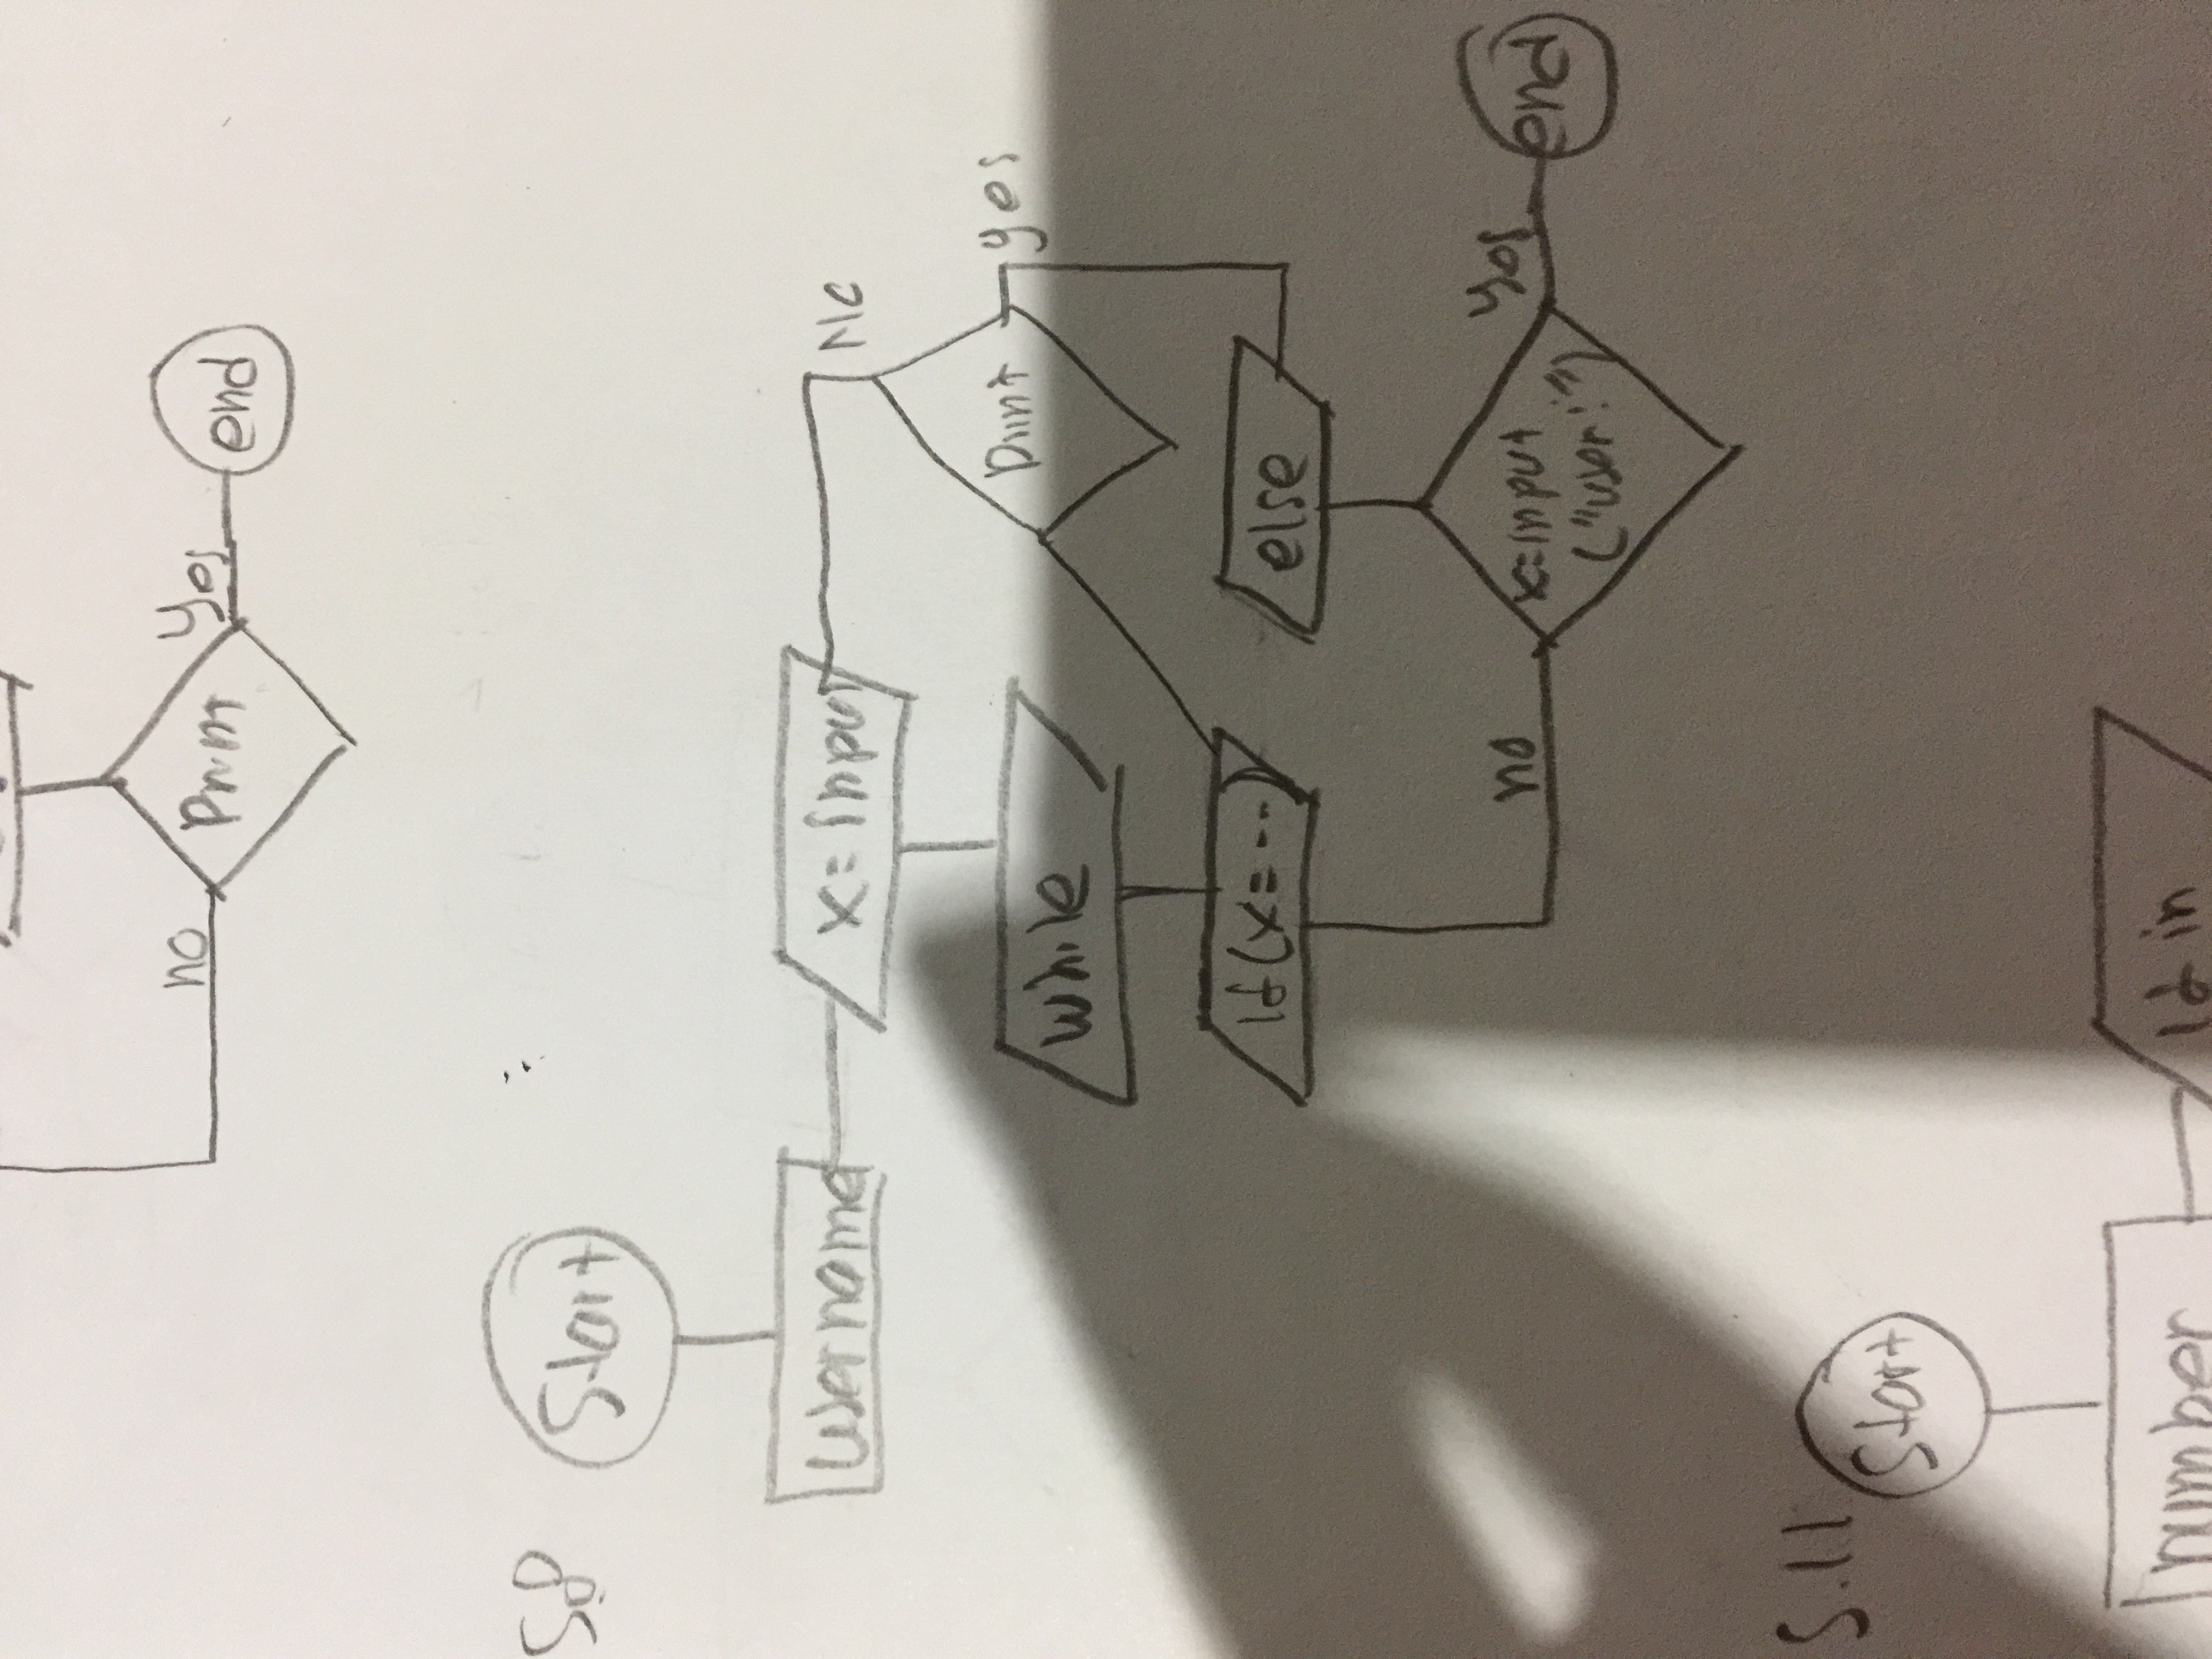 no
Print
yes
end
S8
Start
username
x=input
No
Print
yes
while
If(x=--)
else
no
x=input
("user:")
yes
end
5.11
Start
number
If in